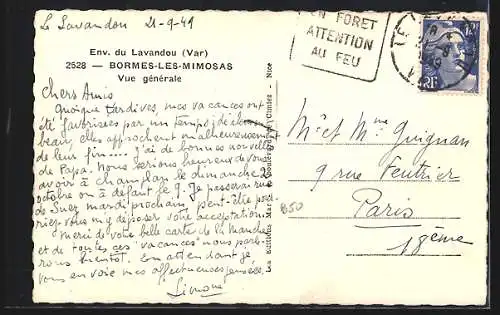 Le Lavandou 21-9-49
Env. du Lavandou (Var)
2528 — BORMES-LES-MIMOSAS
Vue générale
EN FORET
ATTENTION
AU FEU
RF
Chers Amis
Quoique tardives mes vacances ont
été favorisées par un temps idéalement
beau, elles approchent malheureusement
de leur fin.... J'ai de bonnes nouvelles
de Papa. Nous serions heureux de vous
avoir à champlan le dimanche 2
octobre ou à défaut le 9. Je passerai rue
de Suez mardi prochain, peut-être pour-
riez-vous m'y déposer votre acceptation.
Merci de votre belle carte de la Manche
et de toutes ces "vacances" nous parle-
rons bientôt. En attendant je
vous envoie mes affectueuses pensées.
Simone
Les Editions Cimiez - Nice
Mr et Mme Guignan
9 rue Feutrier
Paris
18ème
850